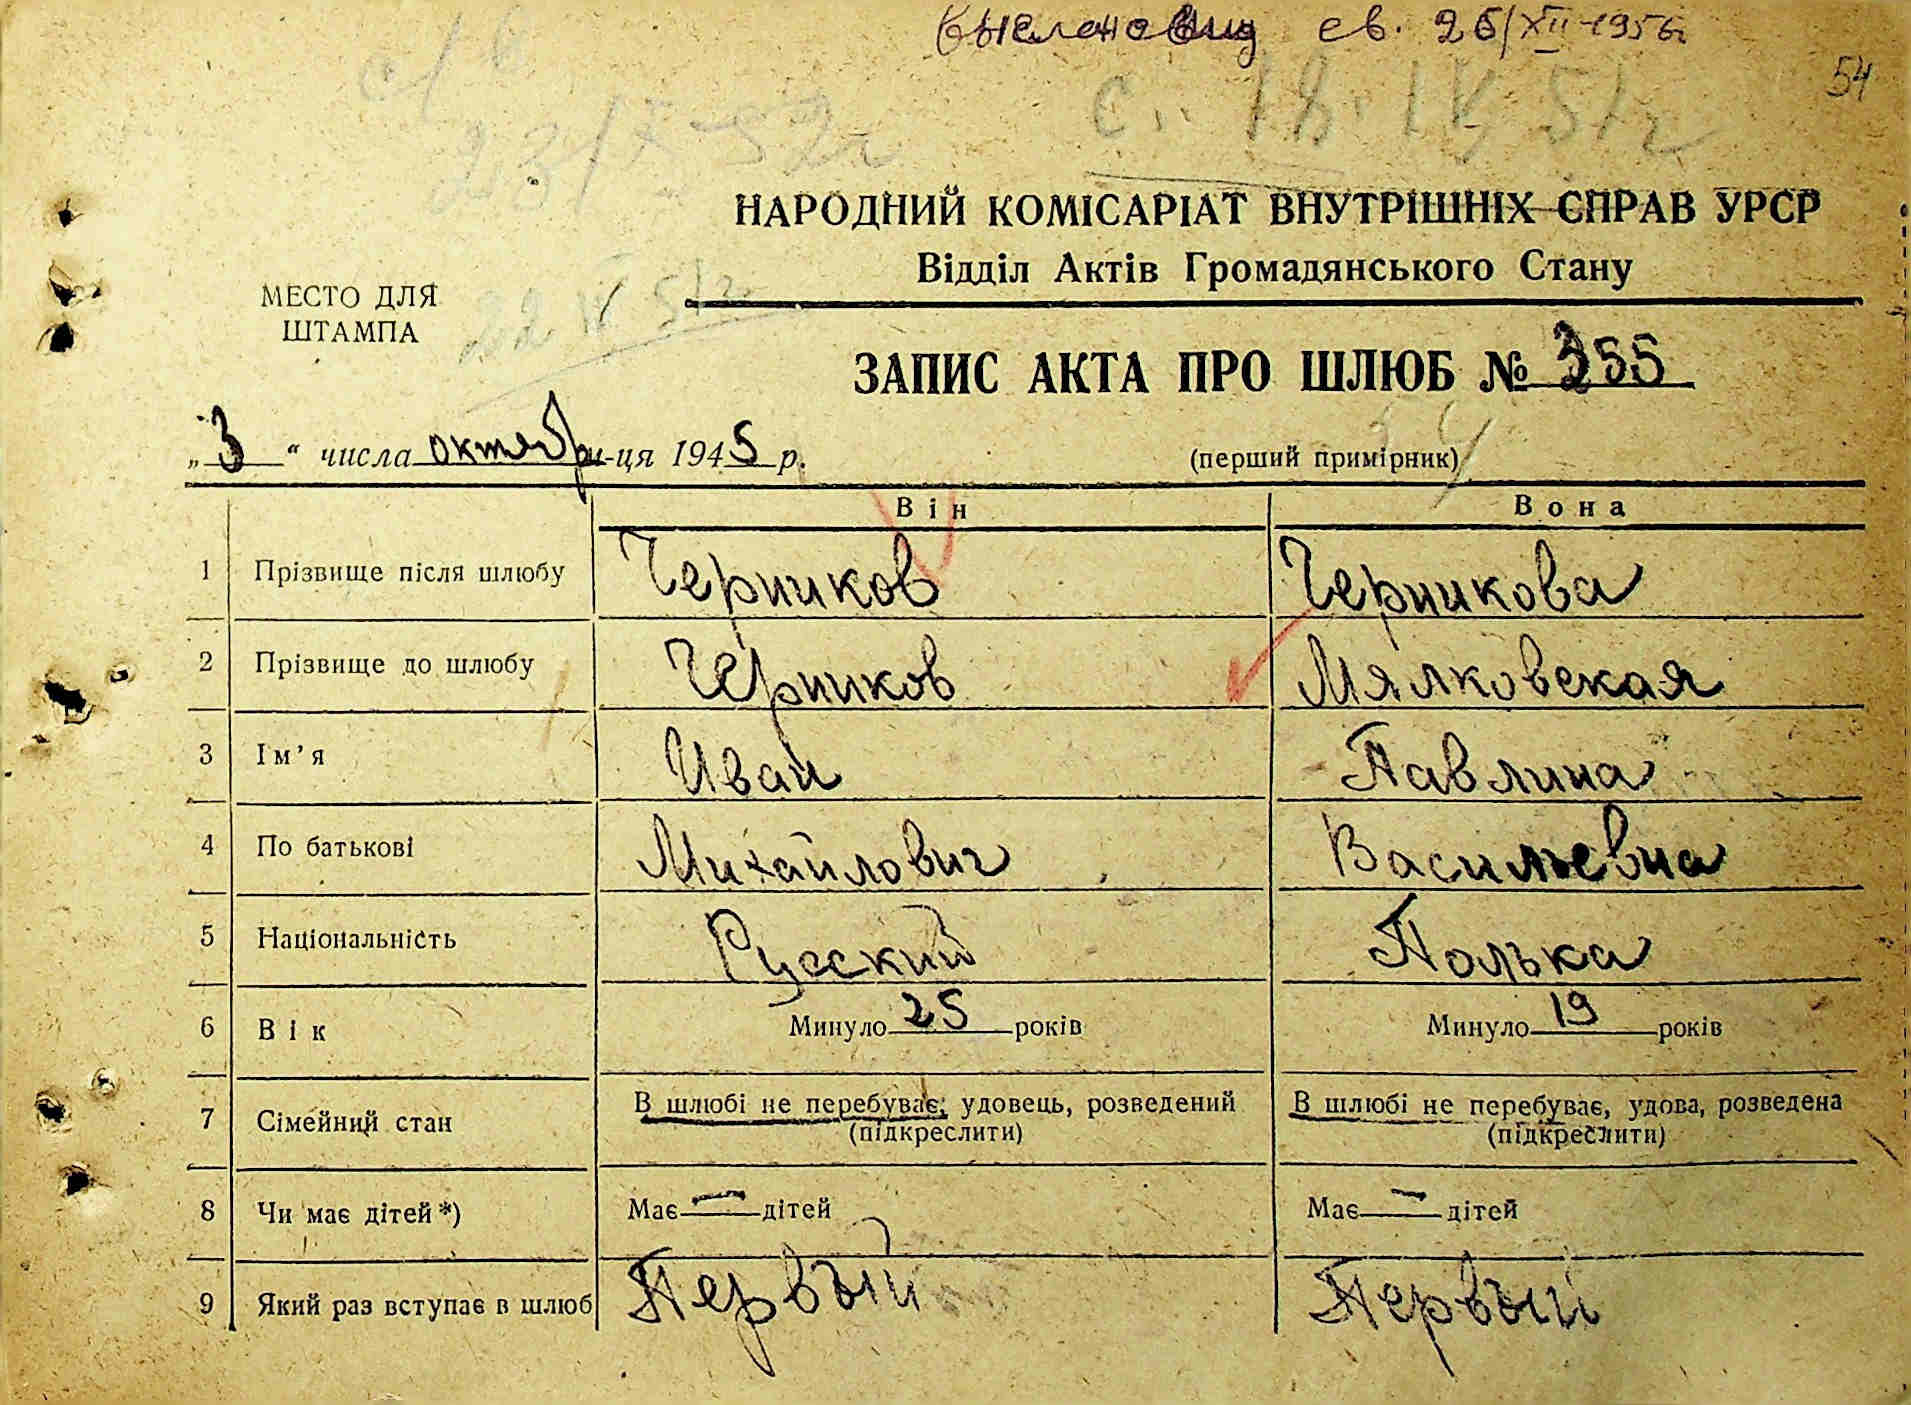 св. 26/XII-1956г
54
с/в
23/X-52г
с.. 18. IV 51г
НАРОДНИЙ КОМІСАРІАТ ВНУТРІШНІХ СПРАВ УРСР
Відділ Актів Громадянського Стану
22 IV 51г
МЕСТО ДЛЯ
ШТАМПА
ЗАПИС АКТА ПРО ШЛЮБ № 355
„3“ числа октябри-ця 1945 р.
(перший примірник)
Він Вона
1 Прізвище після шлюбу Черников Черникова
2 Прізвище до шлюбу Черников Мялковская
3 Ім’я Иван Павлина
4 По батькові Михайлович Васильевна
5 Національність Русский Полька
6 Вік Минуло 25 років Минуло 19 років
7 Сімейний стан В шлюбі не перебуває, удовець, розведений В шлюбі не перебуває, удова, розведена
(підкреслити) (підкреслити)
8 Чи має дітей*) Має — дітей Має — дітей
9 Який раз вступає в шлюб Первый Первый